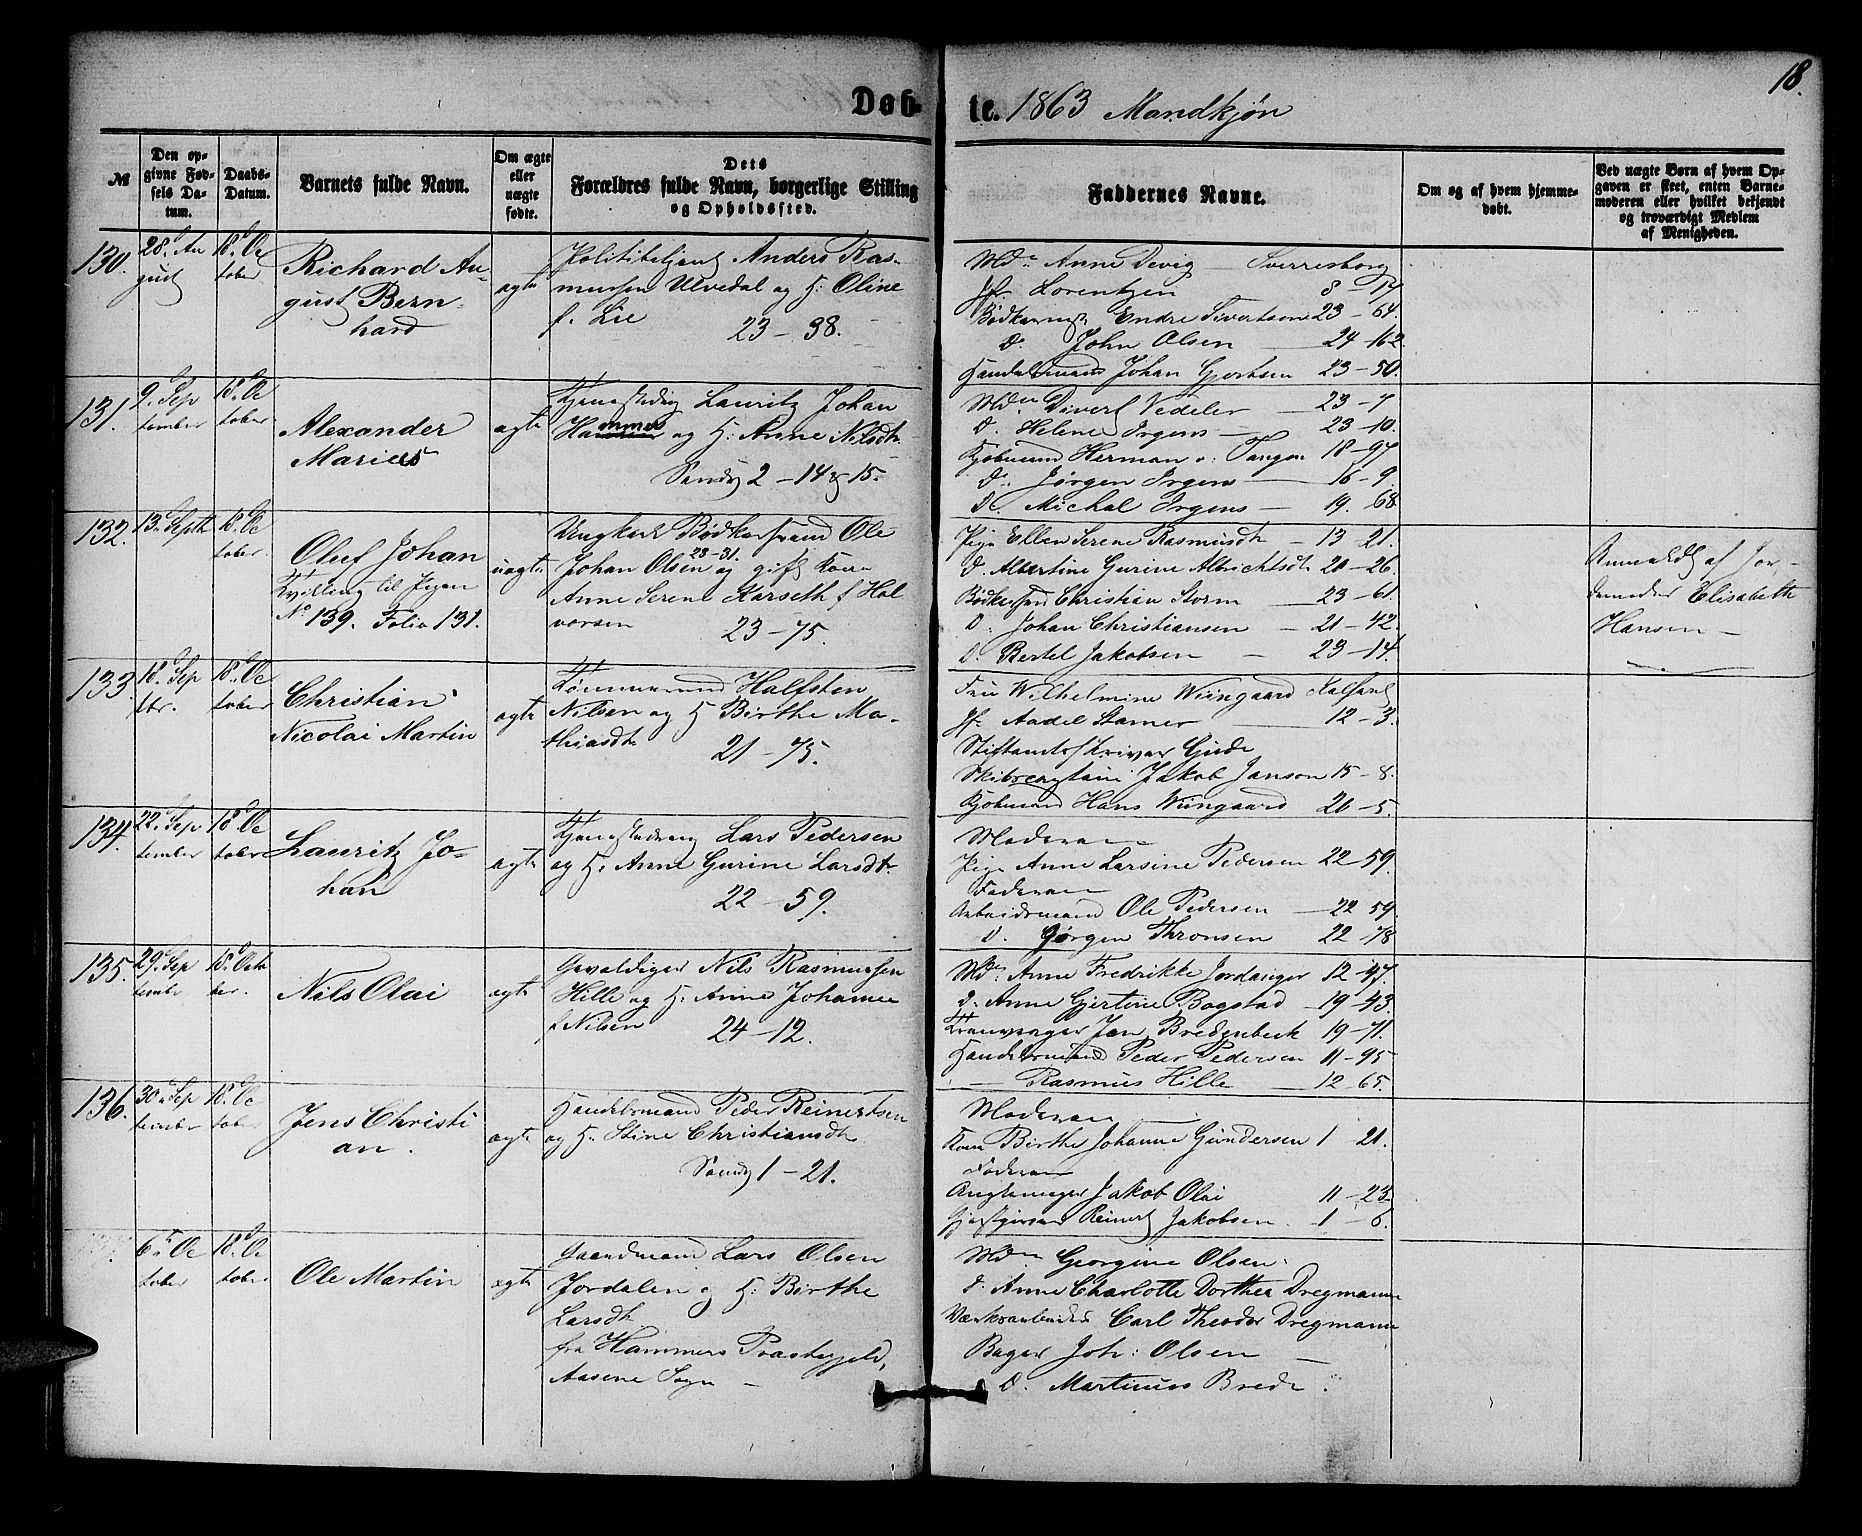 18.
Døb-te. 1863 Mandkjøn
№
Den op-
givne Fød-
sels Da-
tum.
Daabs-
Datum.
Barnets fulde Navn.
Om ægte
eller
uægte
fødte.
Dets
Forældres fulde Navn, borgerlige Stilling
og Opholdssted.
Faddernes Navne.
Om og af hvem hjemme-
døbt.
Ved uægte Børn af hvem Op-
gaven er skeet, enten Barne-
moderen eller hvilket bekjendt
og troværdigt Medlem
af Menigheden.
130.
28. Au
gust
18. Oc
tober
Richard Au-
gust Bern-
hard
ægte
Politibetjent Anders Ras-
mussen Ulvedal og H: Oline
f. Lie 23-38.
Md. Anne Devig Sverresborg
Jfr. Lorentzen 8-17
Bødkersvd Endre Sivertsen 23-64.
D. John Olsen 24-162.
Handelsmand Johan Gjertsen 23-50.
131.
9. Sep
tember
18. Oc
tober
Alexander
Marius
ægte
Lauritz Johan
Hammer og H: Anne Nilsdt.
Sandv 2-14 & 15.
Md. Divert Vedeler 23-7
D. Helene Irgens 23-10.
Kjøbmand Herman v. Tangen 18-97
D. Jørgen Irgens 16-9.
D. Michal Irgens 19-68.
132.
13. Septb
18. Oc
tober.
Oluf Johan
Tvilling til Pigen
No 139. Folio 131.
uægte
Ungkarl Bødkersvend Ole
Johan Olsen 23-31. og gift Kone
Anne Serene Karseth f Hal
vorsen 23-75.
Pige Ellen Serene Rasmusdt 13-21.
D. Albertine Gurine Albrichtsdt 20-26
Bødkersvd Christian Storm 23-61.
D. Johan Christiansen 21-42.
D. Bertel Jakobsen 23-14.
Anmeldt af Jor-
demoder Elisabeth
Hansen
133.
18. Sep
tbr.
18. Oc
tober
Christian
Nicolai Martin
ægte
Tømmermand Halfsten
Nilsen og H Birthe Ma-
thiasdt.
21-75.
Fru Wilhelmine Wiingaard Kalfaret
Jfr Aadel Stamer 12-3.
Stiftamtsskriver Gude
Skibscaptain Jakob Janson 15-8.
Kjøbmand Hans Wiingaard 20-5.
134.
22. Sep
tember
18. Oc
tober
Lauritz Jo-
han
ægte
Lars Pedersen
og H: Anne Gurine Larsdt.
22-59.
Moderen
Pige Anne Larsine Pedersen 22-59.
Faderen
Arbeidsmand Ole Pedersen 22-59.
D. Jørgen Thronsen 22-78
135.
29. Sep
tember
18. Octo
ber.
Nils Olai
ægte
Gevaldiger Nils Rasmussen
Hille og H: Anne Johanne
f Nilsen 24-12.
Md. Anne Fredrikke Jordanger 12-47.
D. Anne Gjertine Bogstad 19-43.
Jan Bredenbeck 19-71.
Handelsmand Peder Pedersen 11-95
Rasmus Hille 12-65.
136.
30. Sep
tember
18. Oc
tober
Jens Christi
an.
ægte
Handelsmand Peder Reinertsen
og H. Stine Christiansdt
Sandv 1-21.
Moderen
Kone Birthe Johanne Gundersen 1 21.
Faderen
Jakob Olai 11-23.
Gjæstgiver Reinert Jakobsen. 1-6.
6. Oc
tober
18. Oc
tober
Ole Martin
ægte
Gaardmand Lars Olsen
Jordalen og H: Birthe
Larsdt
fra Hammers Præstegjeld,
Aasene Sogn
Md. Georgine Olsen.
D. Anne Charlotte Dorthea Dregmann
Værksarbeider Carl Theodor Dregmann
Bager Joh: Olsen
D. Martinus Brede.